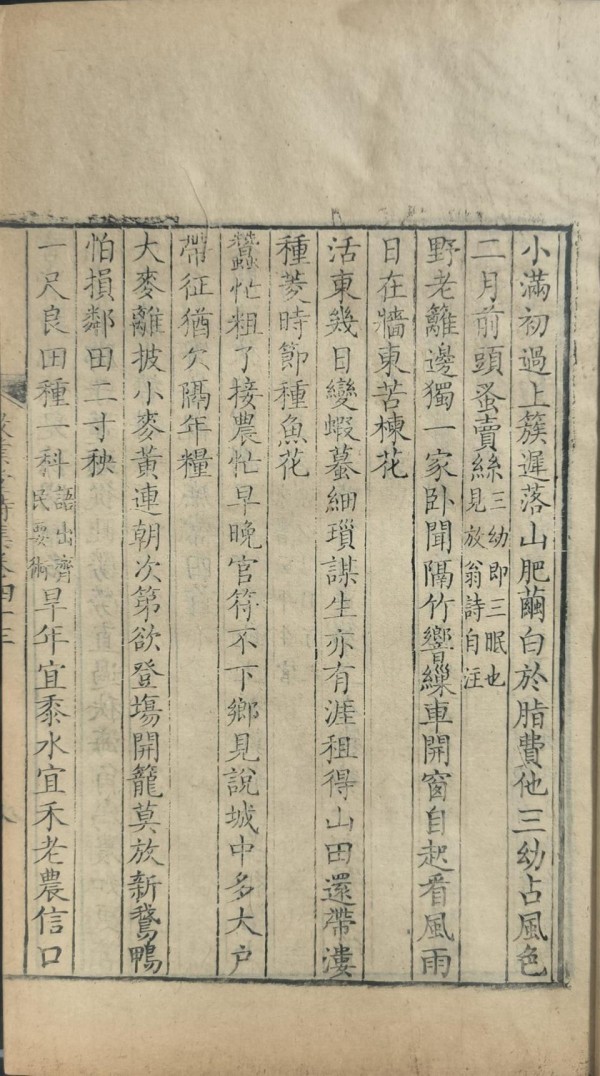 小滿初過上簇遲落山肥繭白於脂費他三幼占風色
二月前頭蚤賣絲三幼即三眠也
見放翁詩自注
野老籬邊獨一家卧聞隔竹響繅車開窗自起看風雨
日在牆東苦楝花
活東幾日變蝦蟇細瑣謀生亦有涯租得山田還帶漊
種菱時節種魚花
蠶忙粗了接農忙早晚官符不下鄉見說城中多大户
帶征猶欠隔年糧
大麥離披小麥黃連朝次第欲登塲開籠莫放新鵞鴨
怕損鄰田二寸秧
一尺良田種一科語出齊
民要術旱年宜黍水宜禾老農信口